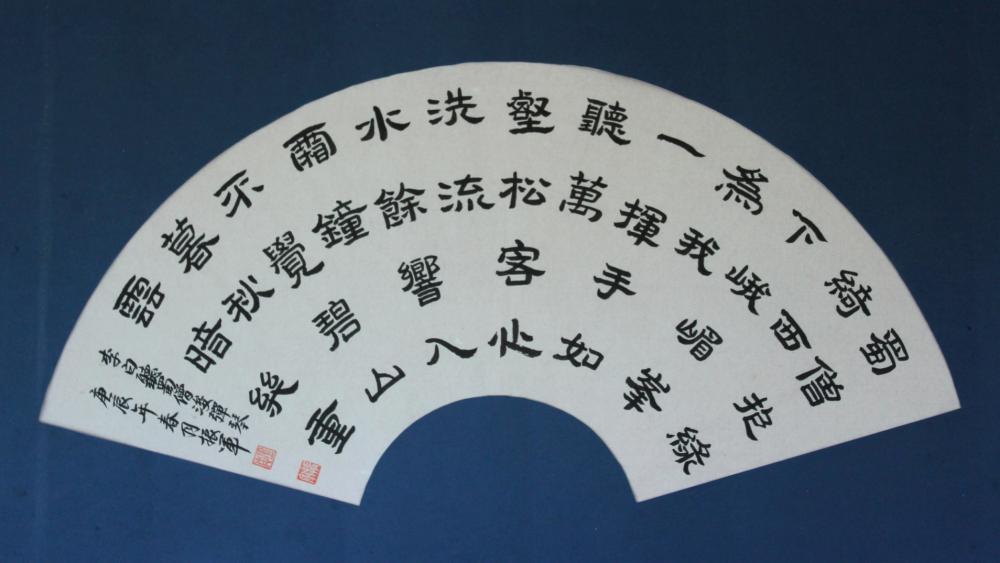 蜀僧抱綠
綺西
下峨嵋峯
為我
一揮手如
聽萬
壑松客心
洗流
水餘響入
霜鐘
不覺碧山
暮秋
雲暗幾重
李白聽蜀僧浚彈琴
庚辰年春月振軍